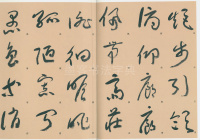 矩步引領
俯仰廊廟
束帶矜莊
徘徊瞻眺
孤陋寡聞
愚蒙等誚